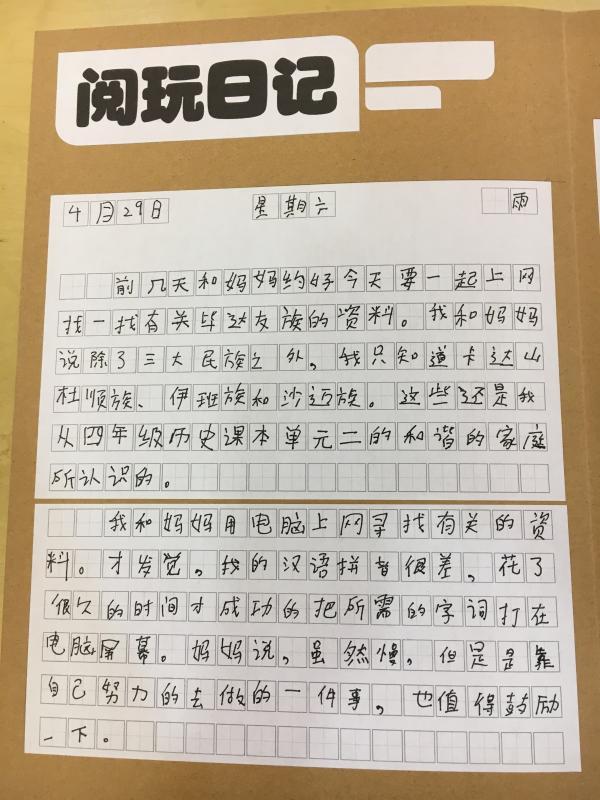 阅玩日记
4月29日 星期六 雨
前几天和妈妈约好今天要一起上网
找一找有关毕达友族的资料。我和妈妈
说除了三大民族之外，我只知道卡达山
杜顺族、伊班族和沙迈族。这些还是我
从四年级历史课本单元二的和谐的家庭
所认识的。
我和妈妈用电脑上网寻找有关的资
料。才发觉，我的汉语拼音很差，花了
很久的时间才成功的把所需的字词打在
电脑屏幕。妈妈说，虽然慢，但是是靠
自己努力的去做的一件事，也值得鼓励
一下。